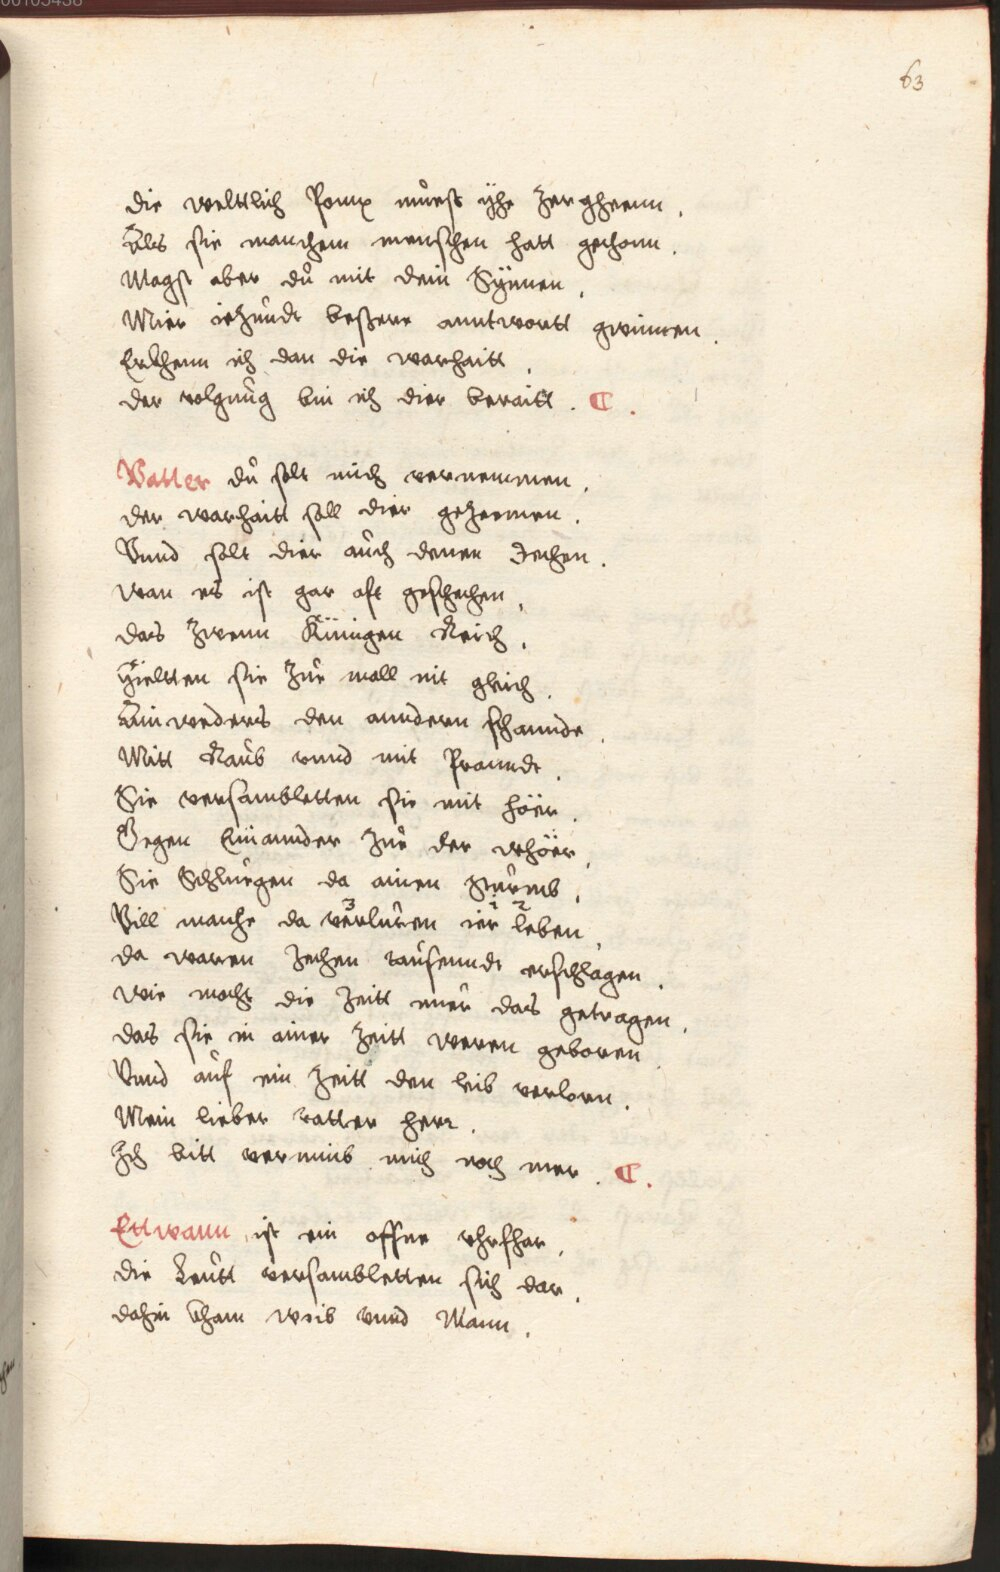 00103438
63
die welttlich Pomp muest ÿhe zergheenn.
Als sie manchem menschen hatt gethonn.
Magst aber du mit dein Sÿnnen,
Mier iezundt beßere anntwortt gwinnen.
Erkhenn ich dan die warhaitt,
der volgung bin ich dier beraitt. ¶.
Vatter du solt mich vernemmen,
der warhaitt soll dier gezeemen.
Vnnd solt dier auch denen Jechen.
wan es ist gar oft geschechen,
das zwenn Künigen Reich,
Hieltten sie zue mall nit gleich.
Ainweders den anndern schannde,
Mitt Raub vnnd mit Pranndt.
Sie versambletten sie mit höer,
Gegen Einannder zue der whöer,
Sie Schluegen da ainen sturmb,
Vill manche da verluren ier leben,
3 1 2
da waren zechen tausenndt erschlagen,
wie mocht die zeitt nuer das getragen,
das sie in ainer zeitt weren geboren
Vnnd auf ein zeitt den leib verlorn.
Mein lieber vatter herr.
Ich bitt vernimb mich noch mer. ¶.
Ettwann ist ein offne vhrfhar,
die Leutt versambletten sich dar,
dahin kham weib vnnd Mann,